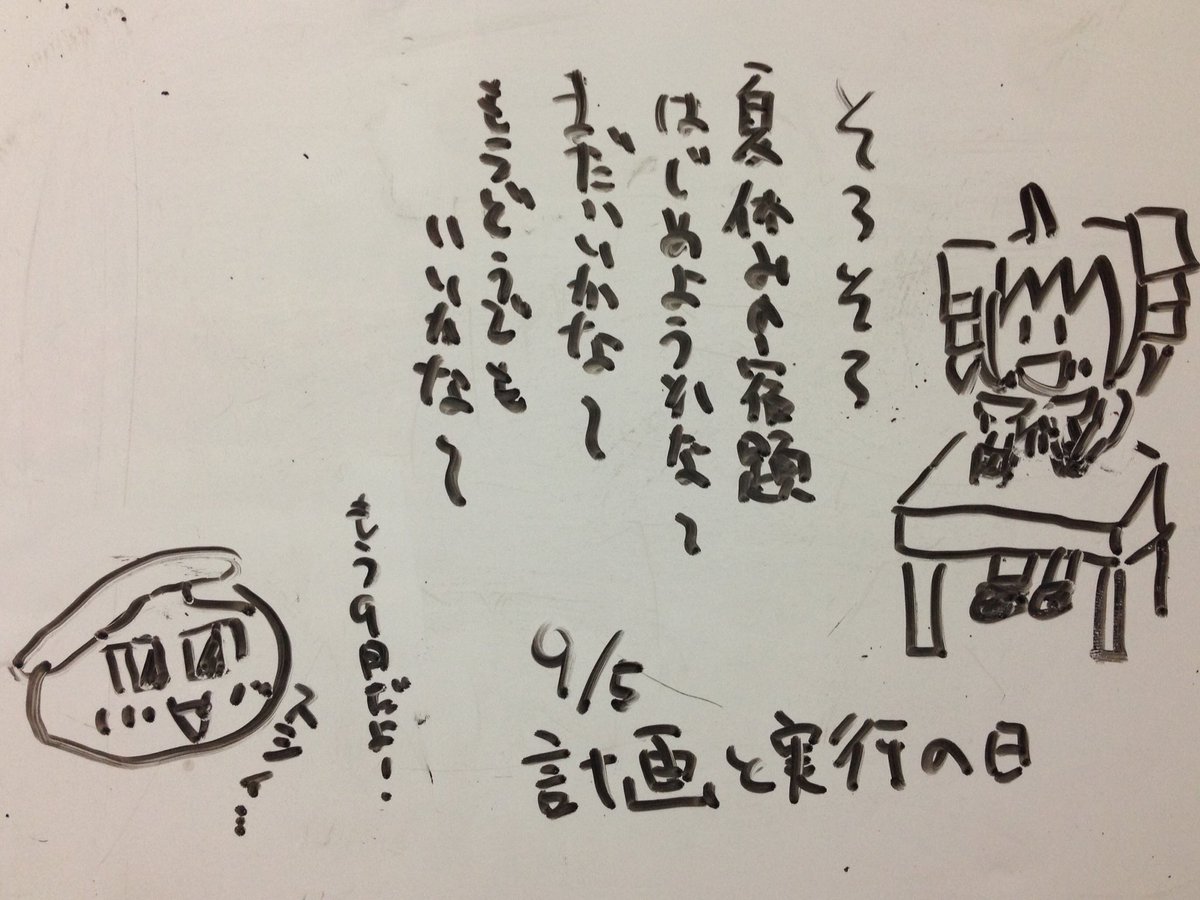 そろそろ
夏休みの宿題
はじめようかな～
まだいいかな～
もうどうでも
いいかな～
もう9月だよ!
9/5
計画と実行の日